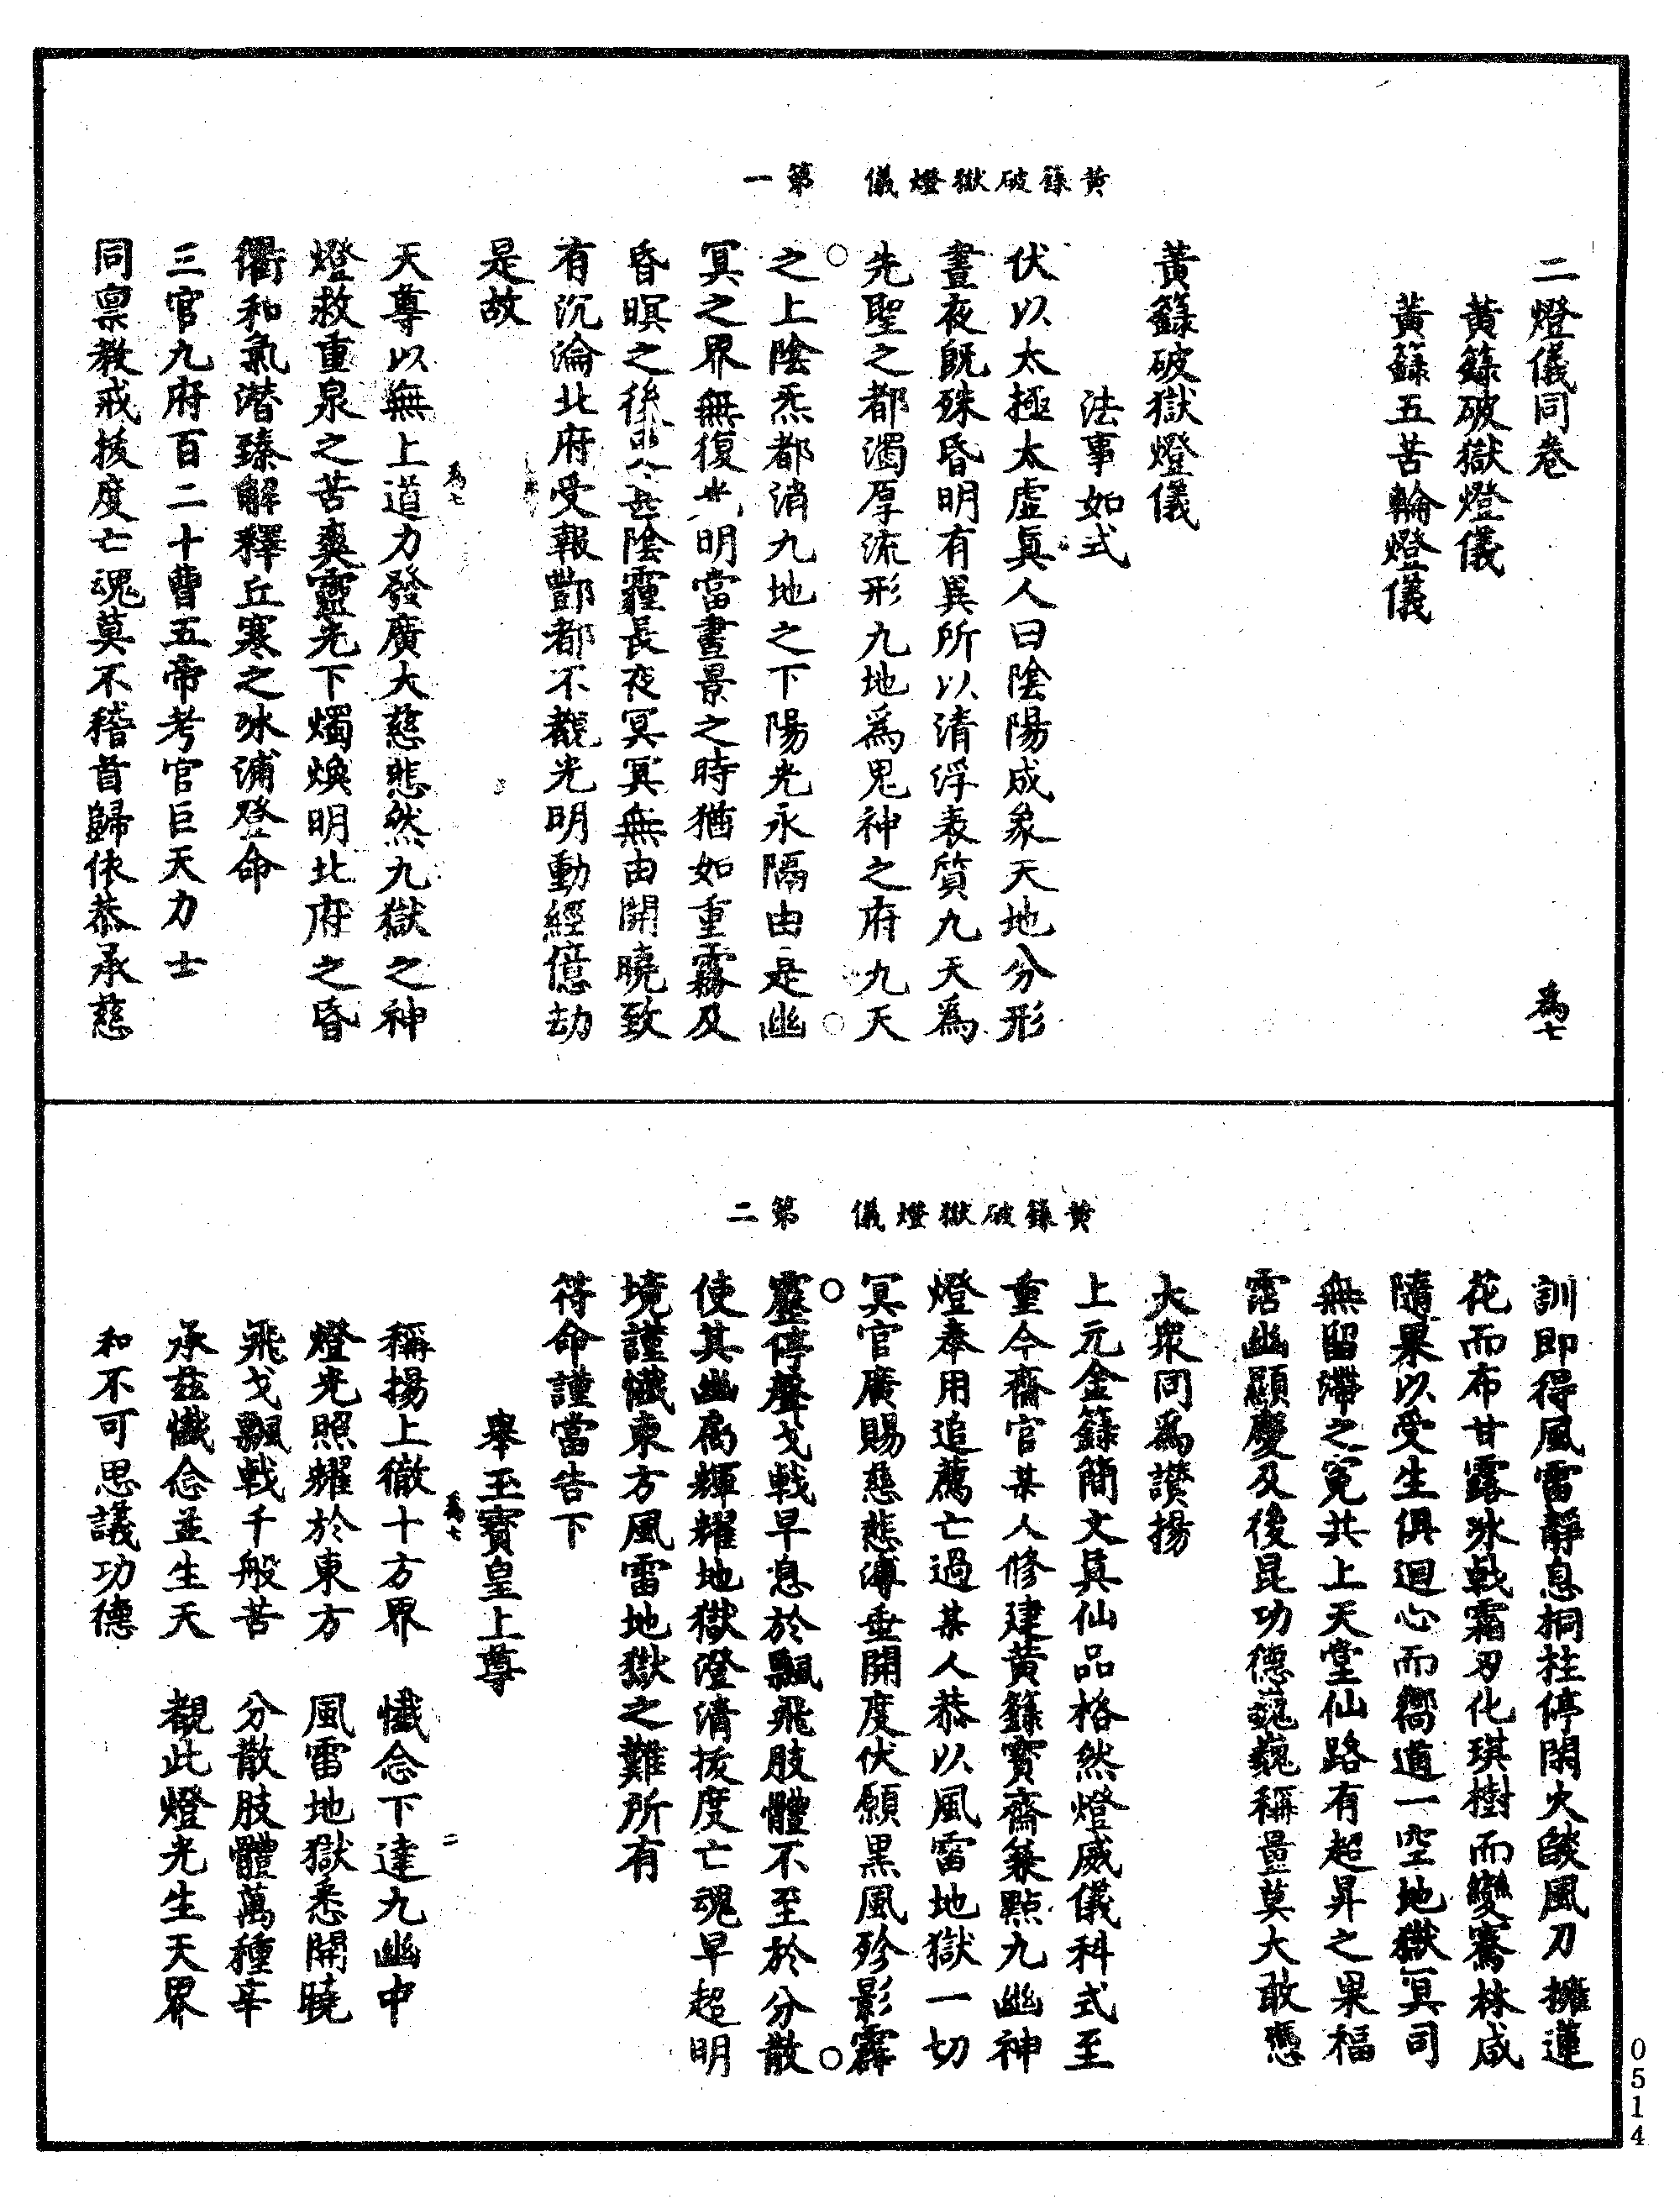 二燈儀同卷 爲七
黃籙破獄燈儀
黃籙五苦輪燈儀
黃籙破獄燈儀
法事如式
伏以太極太虛眞人曰陰陽成象天地分形
晝夜旣殊昏明有異所以清浮表質九天爲
先聖之都濁厚流形九地爲鬼神之府九天
之上陰炁都消九地之下陽光永隔由是幽
冥之界無復光明當晝景之時猶如重霧及
昏暝之後陰霾長夜冥冥無由開曉致
有沉淪北府受報酆都不覩光明動經億劫
是故
天尊以無上道力發廣大慈悲然九獄之神
燈救重泉之苦爽靈光下燭煥明北府之昏
衢和氣潛臻解釋丘寒之冰滷登命
三官九府百二十曹五帝考官巨天力士
同稟教戒拔度亡魂莫不稽首歸依恭承慈
黃籙破獄燈儀 第一
爲七
訓即得風雷靜息捅柱停閑火燄風刀擁蓮
花而布甘露冰戟霜刃化琪樹而變騫林咸
隨果以受生俱迴心而嚮道一空地獄冥司
無留滯之寃共上天堂仙路有超昇之果福
霑幽顯慶及後昆功德巍巍稱量莫大敢憑
大衆同爲讚揚
上元金籙簡文眞仙品格然燈威儀科式至
重今齋官某人修建黃籙寶齋篆點九幽神
燈奉用追薦亡過某人恭以風雷地獄一切
冥官廣賜慈悲溥垂開度伏願黑風殄影霹
靂停聲戈戟早息於飄飛肢體不至於分散
使其幽扃輝耀地獄澄清拔度亡魂早超明
境謹懺東方風雷地獄之難所有
符命謹當告下
舉玉寶皇上尊
稱揚上徹十方界 懺念下達九幽中
燈光照耀於東方 風雷地獄悉開曉
飛戈飄戟千般苦 分散肢體萬種辛
承茲懺念並生天 覩此燈光生天界
和不可思議功德
黃籙破獄燈儀 第二
爲七 二
0514